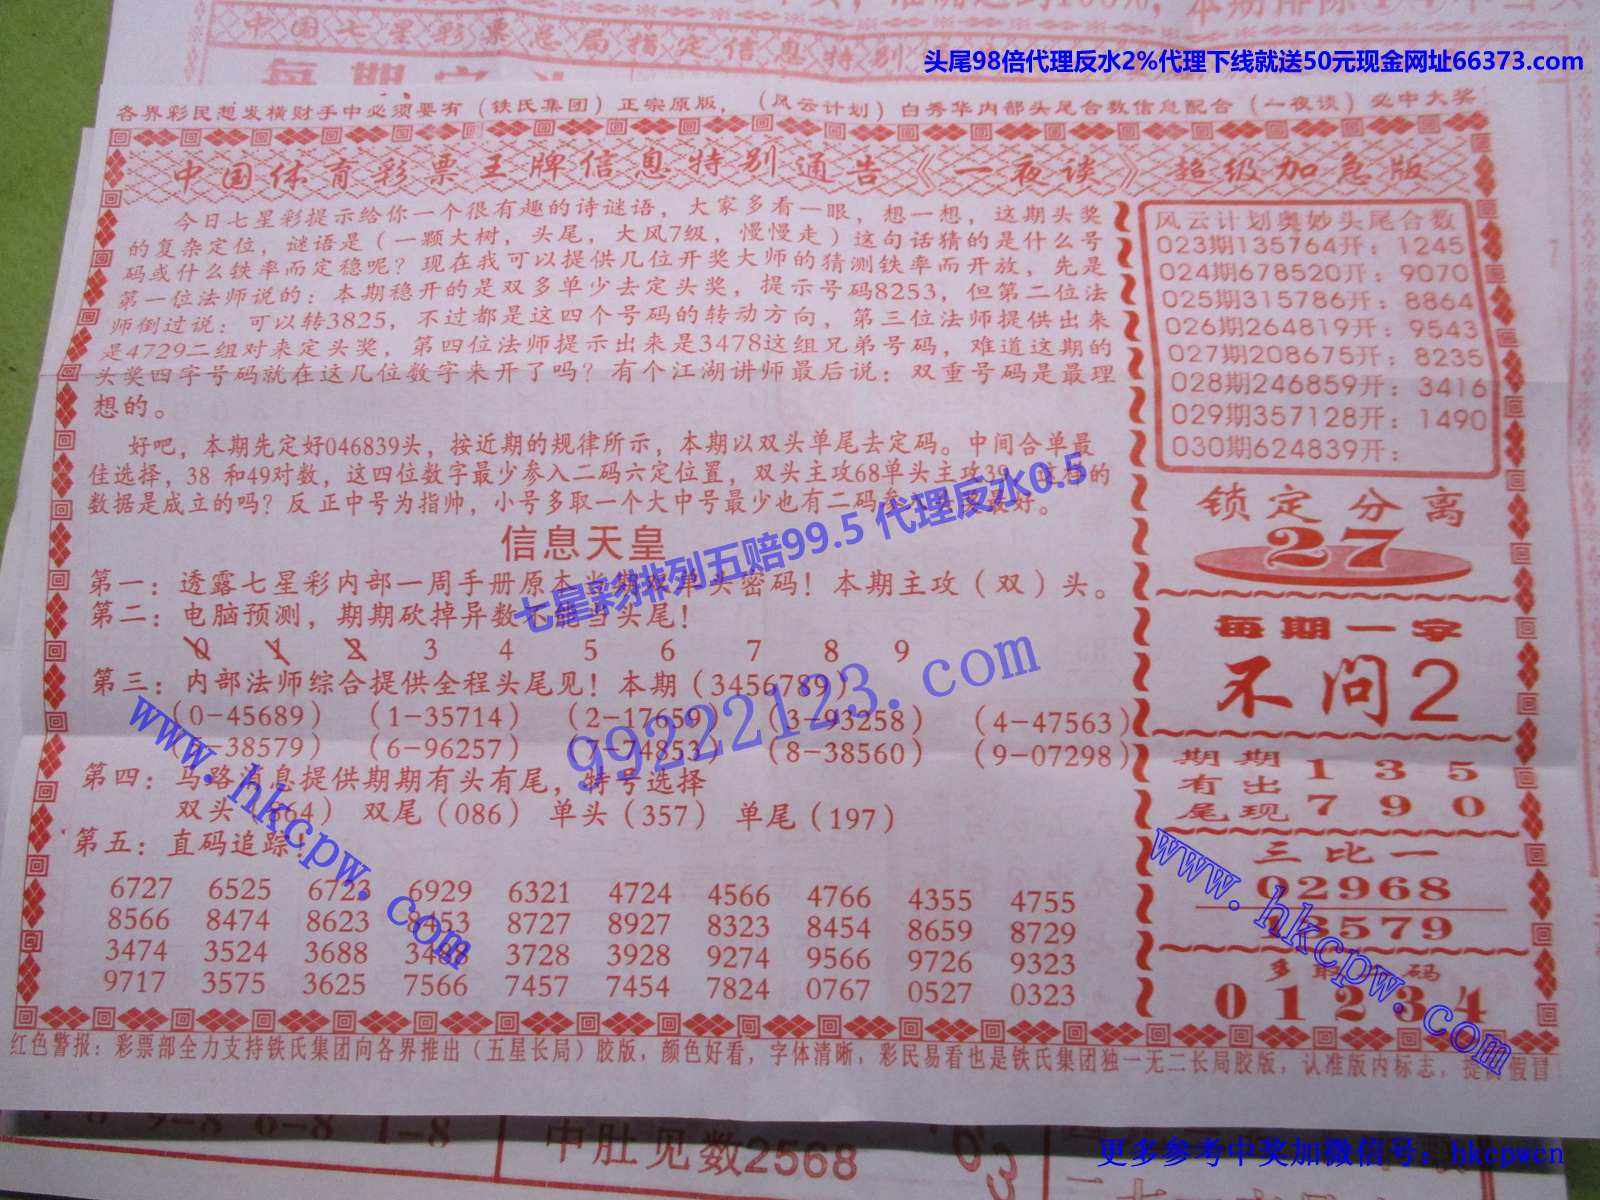 中国七星彩票总局指定信息特别
头尾98倍代理反水2%代理下线就送50元现金网址66373.com
各界彩民想发横财手中必须要有（铁氏集团）正宗原版，（风云计划）白秀华内部头尾合数信息配合（一夜谈）必中大奖
中国体育彩票王牌信息特别通告《一夜谈》超级加急版
今日七星彩提示给你一个很有趣的诗谜语，大家多看一眼，想一想，这期头奖
的复杂定位，谜语是（一颗大树，头尾，大风7级，慢慢走）这句话猜的是什么号
码或什么铁率而定稳呢？现在我可以提供几位开奖大师的猜测铁率而开放，先是
第一位法师说的：本期稳开的是双多单少去定头奖，提示号码8253，但第二位法
师倒过说：可以转3825，不过都是这四个号码的转动方向，第三位法师提供出来
是4729二组对来定头奖，第四位法师提示出来是3478这组兄弟号码，难道这期的
头奖四字号码就在这几位数字来开了吗？有个江湖讲师最后说：双重号码是最理
想的。
好吧，本期先定好046839头，按近期的规律所示，本期以双头单尾去定码。中间合单最
佳选择，38 和49对数，这四位数字最少参入二码六定位置，双头主攻68单头主攻39，这样的
数据是成立的吗？反正中号为指帅，小号多取一个大中号最少也有二码参 好。
信息天皇
第一：透露七星彩内部一周手册原本当期双单头密码！本期主攻（双）头。
第二：电脑预测，期期砍掉异数不能当头尾！
0 1 2 3 4 5 6 7 8 9
第三：内部法师综合提供全程头尾见！本期（3456789）
（0-45689） （1-35714） （2-17659） （3-93258） （4-47563）
-38579） （6-96257） （7-74853） （8-38560） （9-07298）
第四：马路消息提供期期有头有尾，特号选择
双头（864） 双尾（086） 单头（357） 单尾（197）
第五：直码追踪！
6727 6525 6723 6929 6321 4724 4566 4766 4355 4755
8566 8474 8623 8453 8727 8927 8323 8454 8659 8729
3474 3524 3688 3468 3728 3928 9274 9566 9726 9323
9717 3575 3625 7566 7457 7454 7824 0767 0527 0323
风云计划奥妙头尾合数
023期135764开：1245
024期678520开：9070
025期315786开：8864
026期264819开：9543
027期208675开：8235
028期246859开：3416
029期357128开：1490
030期624839开：
锁定分离
27
每期一字
不问2
期期 1 3 5
有出
尾现 7 9 0
三比一
02968
13579
多 码
01234
红色警报：彩票部全力支持铁氏集团向各界推出（五星长局）胶版，颜色好看，字体清晰，彩民易看也是铁氏集团独一无二长局胶版，认准版内标志，提防假冒
七星彩排列五赔99.5 代理反水0.5
99222123.com
www.hkcpw.com
www.hkcpw.com
9-8 6-8 1-8
中肚见数2568
更多参考中奖加微信号：hkcpwcn